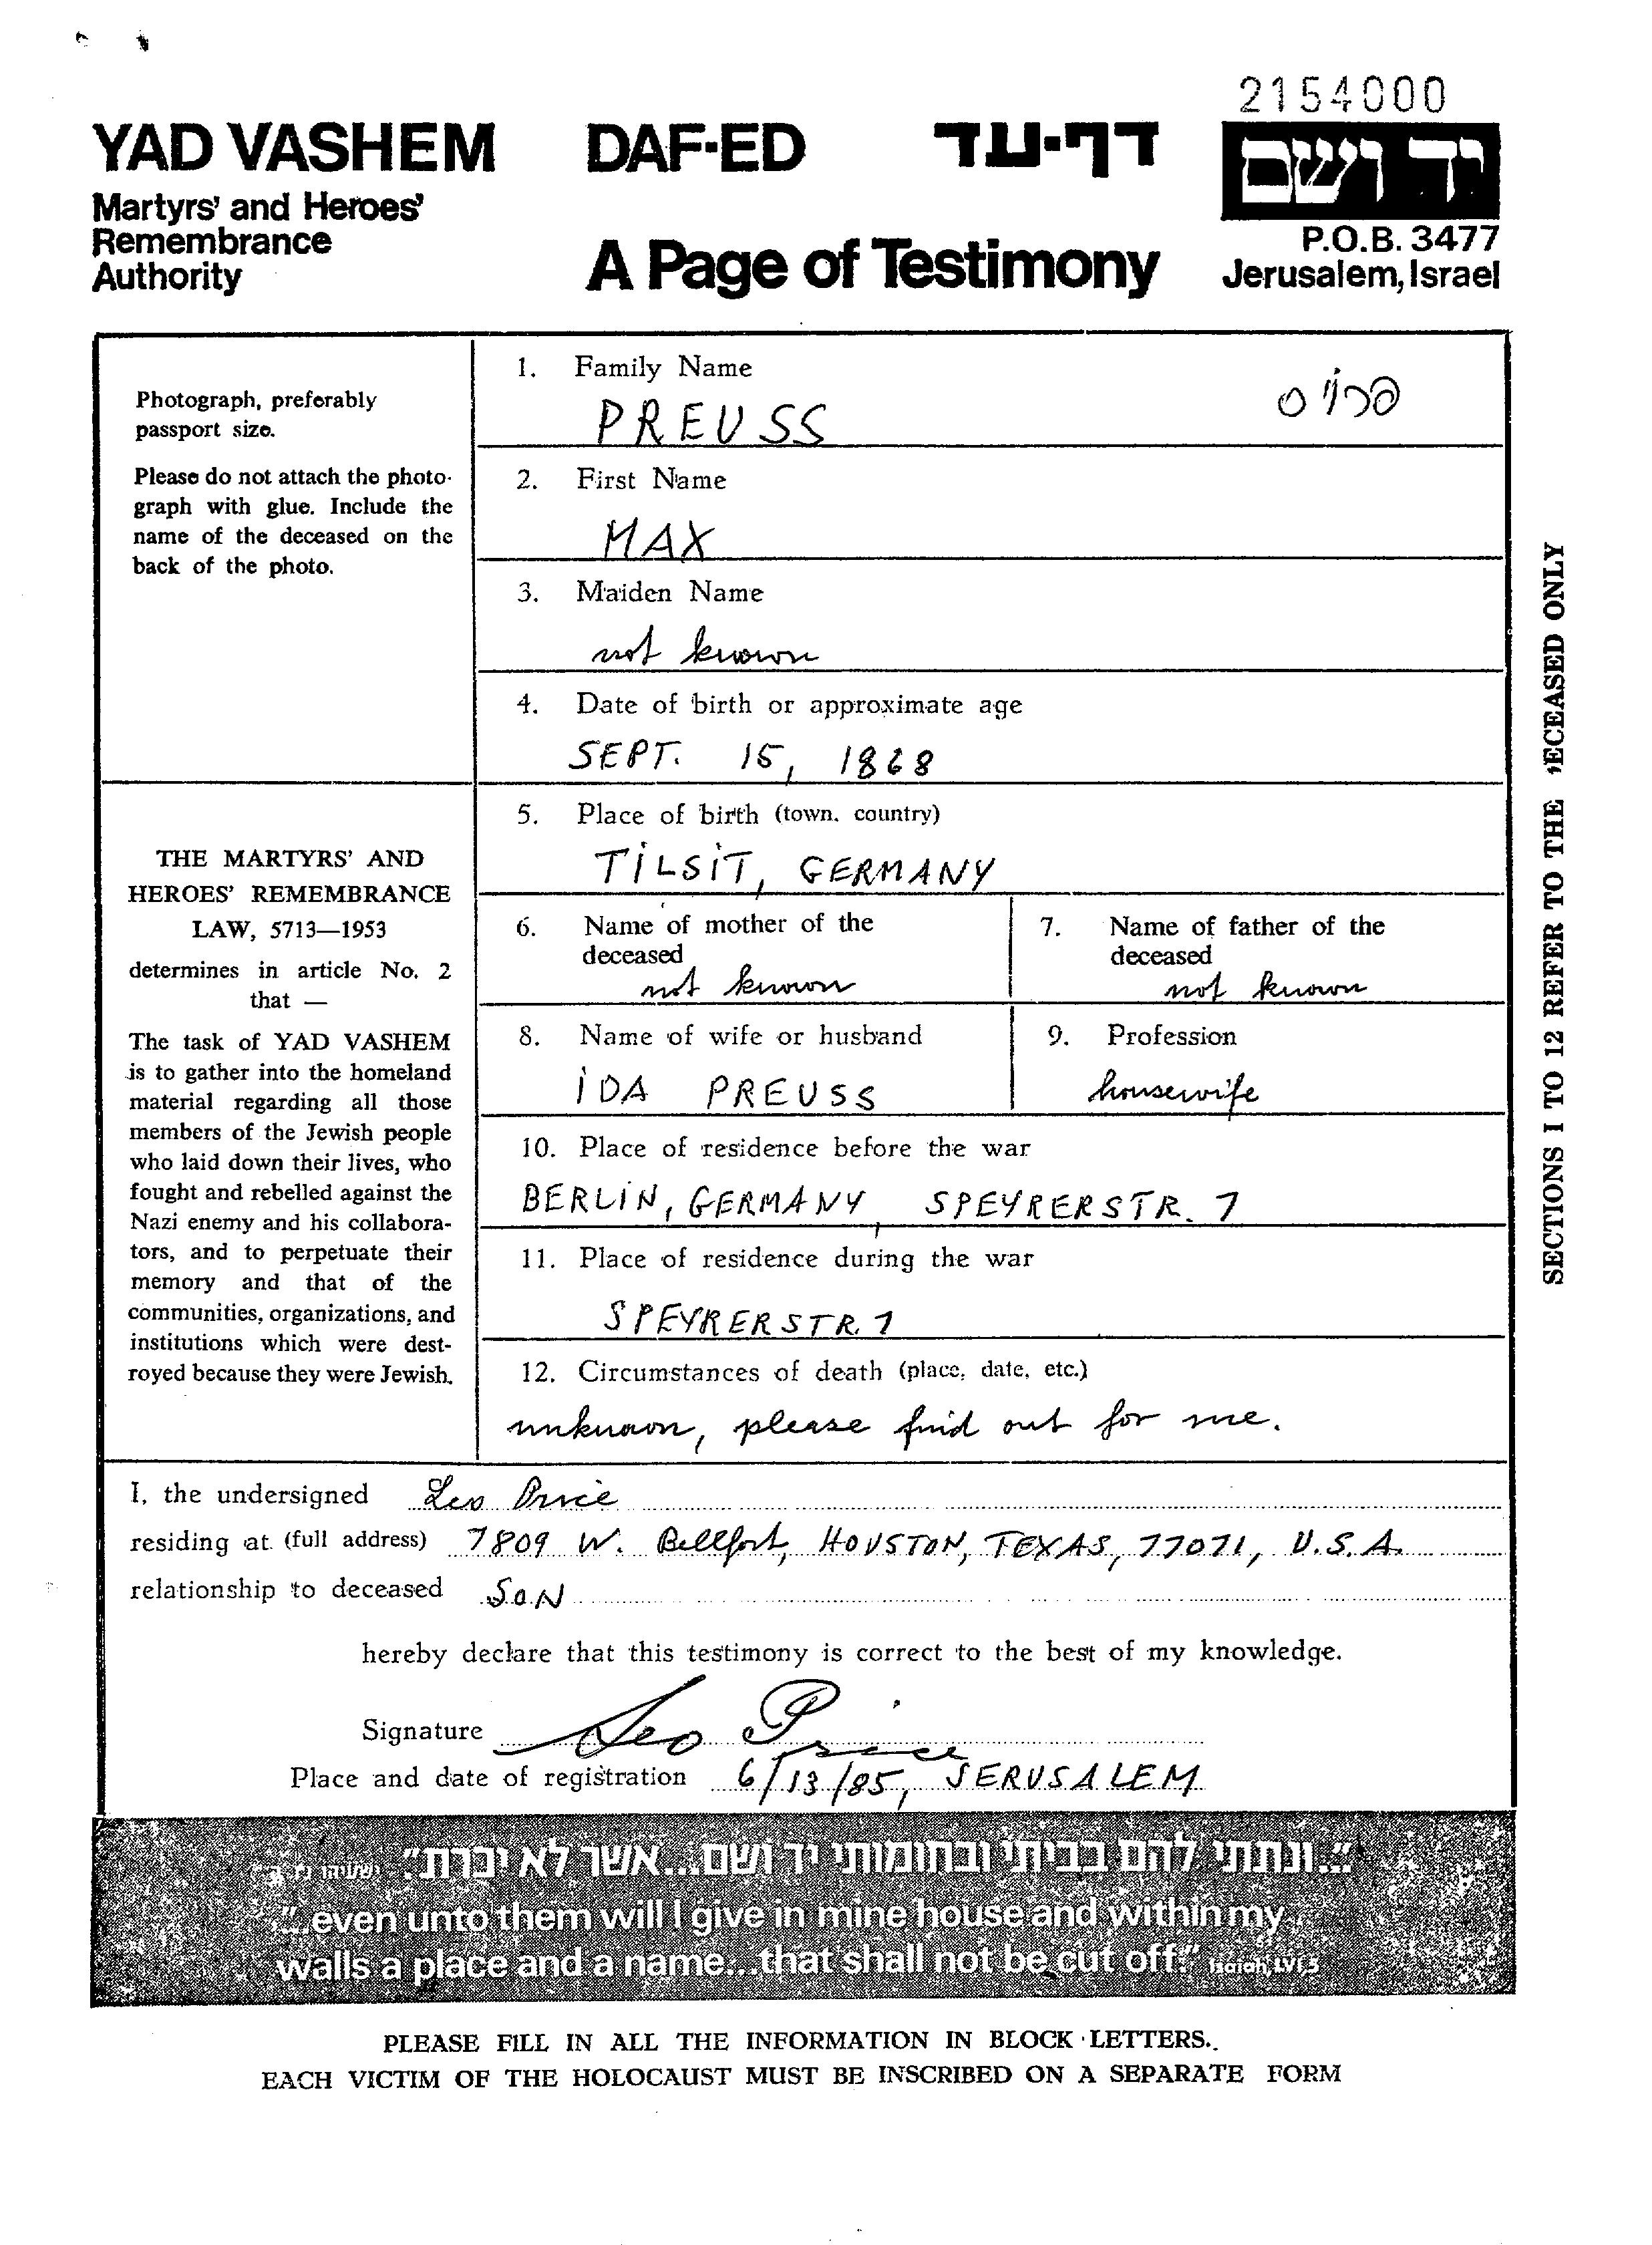 2154000
YAD VASHEM DAF-ED דף-עד יד ושם
Martyrs' and Heroes'
Remembrance
Authority
A Page of Testimony
P.O.B. 3477
Jerusalem, Israel
Photograph, preferably
passport size.
Please do not attach the photo-
graph with glue. Include the
name of the deceased on the
back of the photo.
THE MARTYRS' AND
HEROES' REMEMBRANCE
LAW, 5713—1953
determines in article No. 2
that —
The task of YAD VASHEM
is to gather into the homeland
material regarding all those
members of the Jewish people
who laid down their lives, who
fought and rebelled against the
Nazi enemy and his collabora-
tors, and to perpetuate their
memory and that of the
communities, organizations, and
institutions which were dest-
royed because they were Jewish.
1. Family Name
PREUSS פרויס
2. First Name
MAX
3. Maiden Name
not known
4. Date of birth or approximate age
SEPT. 15, 1868
5. Place of birth (town, country)
TILSIT, GERMANY
6. Name of mother of the
deceased
not known
7. Name of father of the
deceased
not known
8. Name of wife or husband
IDA PREUSS
9. Profession
housewife
10. Place of residence before the war
BERLIN, GERMANY, SPEYRERSTR. 7
11. Place of residence during the war
SPEYRERSTR. 7
12. Circumstances of death (place, date, etc.)
unknown, please find out for me.
SECTIONS 1 TO 12 REFER TO THE DECEASED ONLY
I, the undersigned Leo Price
residing at (full address) 7809 W. Bellfort, HOUSTON, TEXAS, 77071, U.S.A.
relationship to deceased SON
hereby declare that this testimony is correct to the best of my knowledge.
Signature Leo Price
Place and date of registration 6/13/85, JERUSALEM
"...ונתתי להם בביתי ובחומותי יד ושם...אשר לא יכרת."
"...even unto them will I give in mine house and within my
walls a place and a name...that shall not be cut off." Isaiah, LVI,5
PLEASE FILL IN ALL THE INFORMATION IN BLOCK LETTERS.
EACH VICTIM OF THE HOLOCAUST MUST BE INSCRIBED ON A SEPARATE FORM